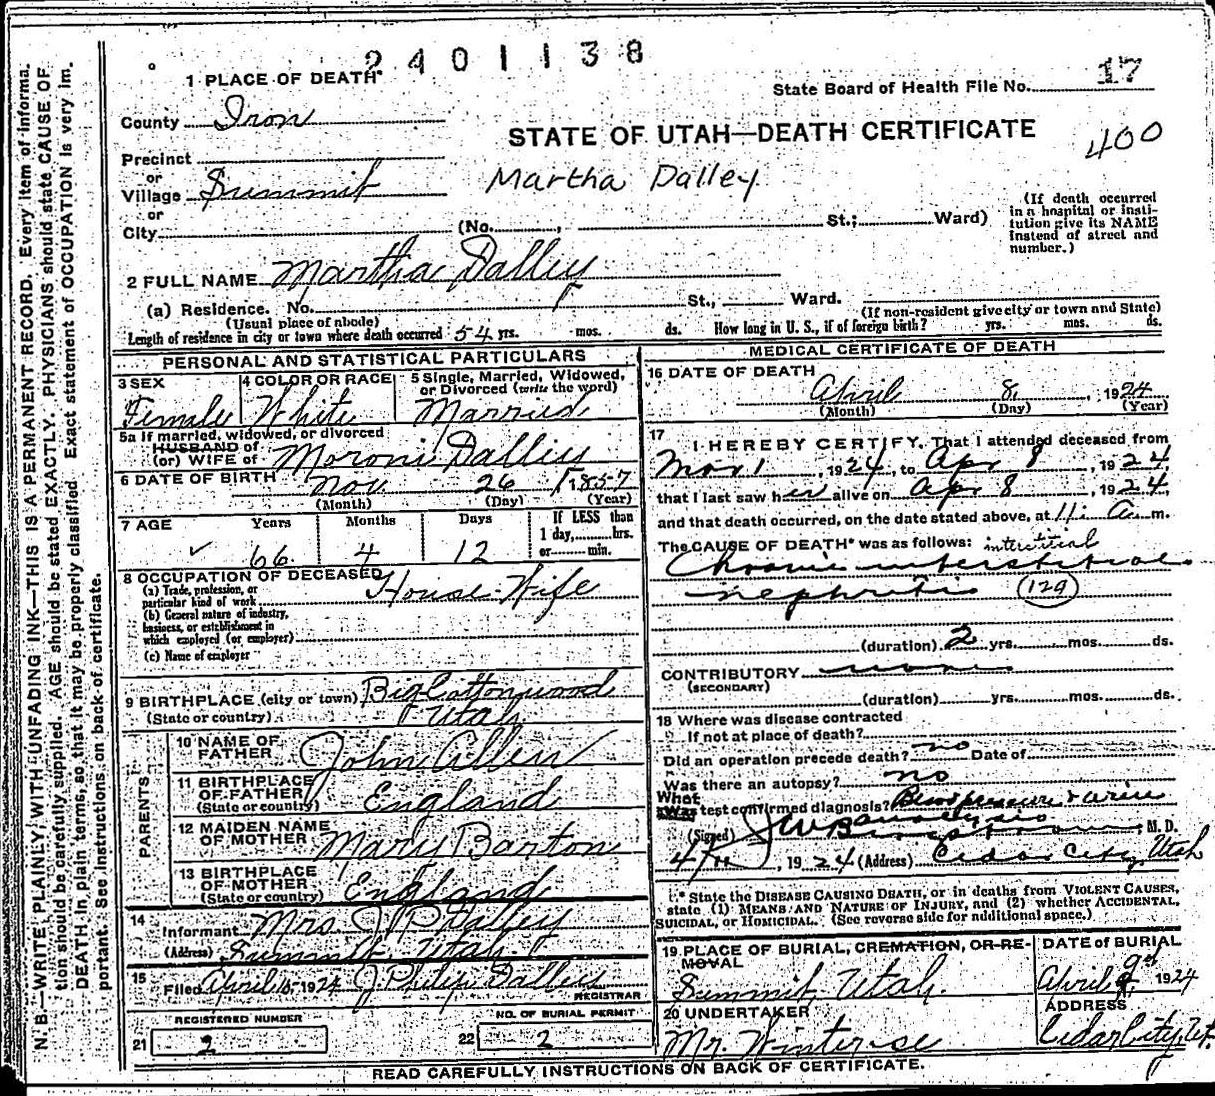 2401138
1 PLACE OF DEATH
State Board of Health File No. 17
County Iron
STATE OF UTAH—DEATH CERTIFICATE
400
Precinct
or
Village Summit
Martha Dalley
or
City (No. , St.; Ward)
(If death occurred in a hospital or insti-
tution give its NAME instead of street and number.)
2 FULL NAME Martha Dalley
(a) Residence. No. St., Ward.
(Usual place of abode) (If non-resident give city or town and State)
Length of residence in city or town where death occurred 54 yrs. mos. ds. How long in U. S., if of foreign birth? yrs. mos. ds.
PERSONAL AND STATISTICAL PARTICULARS
3 SEX Female
4 COLOR OR RACE White
5 Single, Married, Widowed, or Divorced (write the word) Married
5a If married, widowed, or divorced
HUSBAND of
(or) WIFE of Moroni Dalley
6 DATE OF BIRTH Nov 26 1857
(Month) (Day) (Year)
7 AGE Years Months Days If LESS than
1 day, hrs.
or min.
66 4 12
8 OCCUPATION OF DECEASED House-Wife
(a) Trade, profession, or
particular kind of work
(b) General nature of industry,
business, or establishment in
which employed (or employer)
(c) Name of employer
9 BIRTHPLACE (city or town) Big Cottonwood
(State or country) Utah
PARENTS
10 NAME OF FATHER John Allen
11 BIRTHPLACE OF FATHER (State or country) England
12 MAIDEN NAME OF MOTHER Mary Barton
13 BIRTHPLACE OF MOTHER (State or country) England
14 Informant Mrs J P Dalley
(Address) Summit Utah
15 Filed April 1924 J Philip Dalley
REGISTRAR
REGISTERED NUMBER
21 2
NO. OF BURIAL PERMIT
22 2
MEDICAL CERTIFICATE OF DEATH
16 DATE OF DEATH
April 8, 1924
(Month) (Day) (Year)
17 I HEREBY CERTIFY, That I attended deceased from
Mar 1, 1924, to Apr 8, 1924,
that I last saw her alive on Apr 8, 1924,
and that death occurred, on the date stated above, at 11: a m.
The CAUSE OF DEATH* was as follows: interstitial
Chronic interstitial
nephritis (129)
(duration) 2 yrs. mos. ds.
CONTRIBUTORY none
(SECONDARY)
(duration) yrs. mos. ds.
18 Where was disease contracted
If not at place of death?
Did an operation precede death? no Date of
Was there an autopsy? no
What
Was test confirmed diagnosis? Blood pressure & urine
analysis
(Signed) M. D.
4/11, 1924 (Address) Cedar City, Utah
* State the DISEASE CAUSING DEATH, or in deaths from VIOLENT CAUSES,
state (1) MEANS AND NATURE OF INJURY, and (2) whether ACCIDENTAL,
SUICIDAL, or HOMICIDAL. (See reverse side for additional space.)
19 PLACE OF BURIAL, CREMATION, OR RE-
MOVAL
Summit, Utah.
DATE of BURIAL
April 9th 1924
20 UNDERTAKER
Mr. Winterose
ADDRESS
Cedar City, Ut.
READ CAREFULLY INSTRUCTIONS ON BACK OF CERTIFICATE.
N. B.—WRITE PLAINLY WITH UNFADING INK—THIS IS A PERMANENT RECORD. Every item of informa-
tion should be carefully supplied. AGE should be stated EXACTLY. PHYSICIANS should state CAUSE OF
DEATH in plain terms, so that it may be properly classified. Exact statement of OCCUPATION is very im-
portant. See instructions on back of certificate.